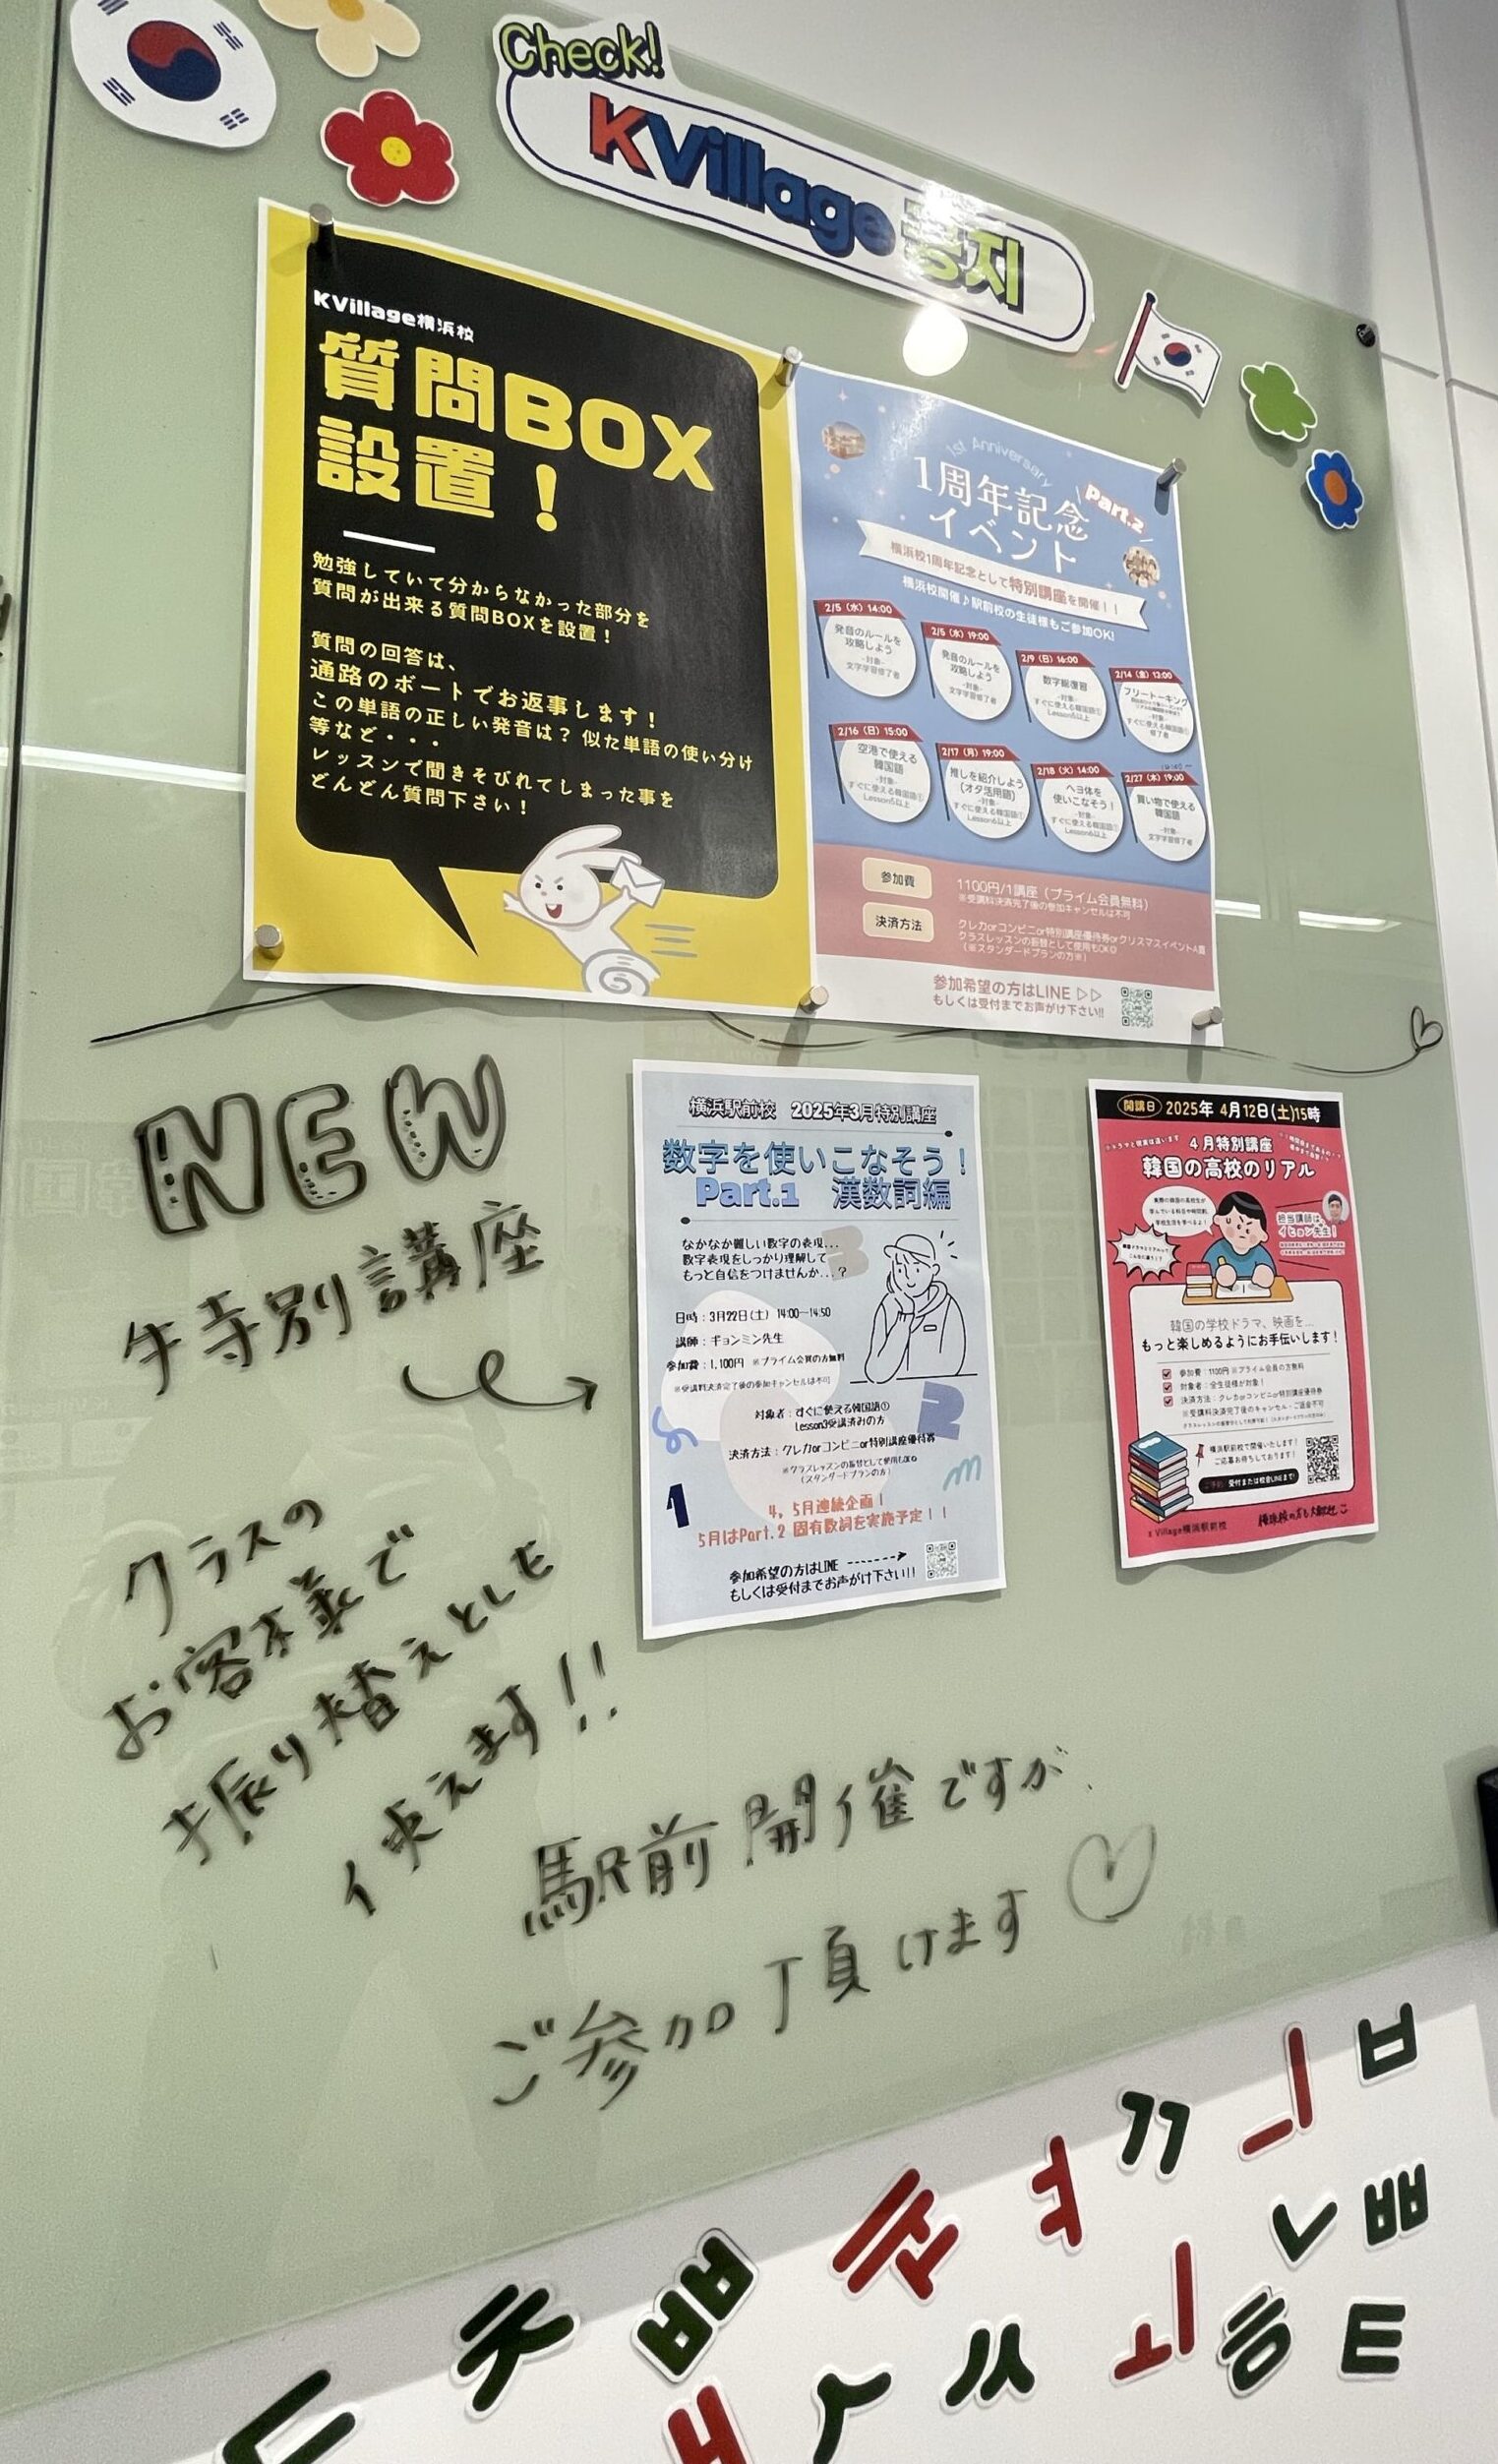 Check!
KVillage공지
KVillage横浜校
質問BOX
設置！
勉強していて分からなかった部分を
質問が出来る質問BOXを設置！
質問の回答は、
通路のボートでお返事します！
この単語の正しい発音は？似た単語の使い分け
等など・・・
レッスンで聞きそびれてしまった事を
どんどん質問下さい！
1st Anniversary
1周年記念
イベント
Part.2
横浜校1周年記念として特別講座を開催！！
横浜校開催♪駅前校の生徒様もご参加OK!
2/5（水）14:00
発音のルールを
攻略しよう
-対象-
文字学習修了者
2/5（水）19:00
発音のルールを
攻略しよう
-対象-
文字学習修了者
2/9（日）16:00
数字総復習
-対象-
すぐに使える韓国語①
Lesson6以上
2/14（金）13:00
フリートーキング
-対象-
すぐに使える韓国語①
修了者
2/16（日）15:00
空港で使える
韓国語
-対象-
すぐに使える韓国語①
Lesson6以上
2/17（月）19:00
推しを紹介しよう
(オタ活用語)
-対象-
すぐに使える韓国語①
Lesson6以上
2/18（火）14:00
ヘヨ体を
使いこなそう！
-対象-
すぐに使える韓国語①
Lesson6以上
2/27（木）19:00
買い物で使える
韓国語
-対象-
文字学習修了者
参加費
1100円/1講座（プライム会員無料）
※受講料決済完了後の参加キャンセルは不可
決済方法
クレカorコンビニor特別講座優待券orクリスマスイベントA賞
クラスレッスンの振替として使用もOK◎
（※スタンダードプランの方※）
参加希望の方はLINE ▷▷
もしくは受付までお声がけ下さい!!
NEW
特別講座
クラスの
お客様で
振り替えとしても
使えます!!
横浜駅前校 2025年3月特別講座
数字を使いこなそう！
Part.1 漢数詞編
なかなか難しい数字の表現...
数字表現をしっかり理解して
もっと自信をつけませんか...？
日時：3月22日(土) 14:00～14:50
講師：ギョンミン先生
参加費：1,100円 ※プライム会員の方無料
※受講料決済完了後の参加キャンセルは不可
対象者：すぐに使える韓国語①
Lesson3受講済みの方
決済方法：クレカorコンビニor特別講座優待券
※クラスレッスンの振替として使用もOK◎
（スタンダードプランの方）
3
2
1
4, 5月連続企画！
5月はPart.2 固有数詞を実施予定！！
参加希望の方はLINE
もしくは受付までお声がけ下さい!!
開講日 2025年 4月12日(土)15時
4月特別講座
韓国の高校のリアル
担当講師は
イヒョン先生！
韓国の学校ドラマ、映画を...
もっと楽しめるようにお手伝いします！
参加費：1100円 ※プライム会員の方無料
対象者：全生徒様が対象！
決済方法：クレカorコンビニor特別講座優待券
※受講料決済完了後のキャンセル・ご返金不可
横浜駅前校で開催いたします！
ご応募お待ちしております！
受付または校舎LINEまで!
K Village横浜駅前校
駅前開催ですが、
ご参加頂けます♡
ㅂ
ㅢ
ㄲ
ㅕ
ㅃ
ㄴ
ㅊ
ㅆ
ㅚ
ㅎ
ㅌ
ㄷ